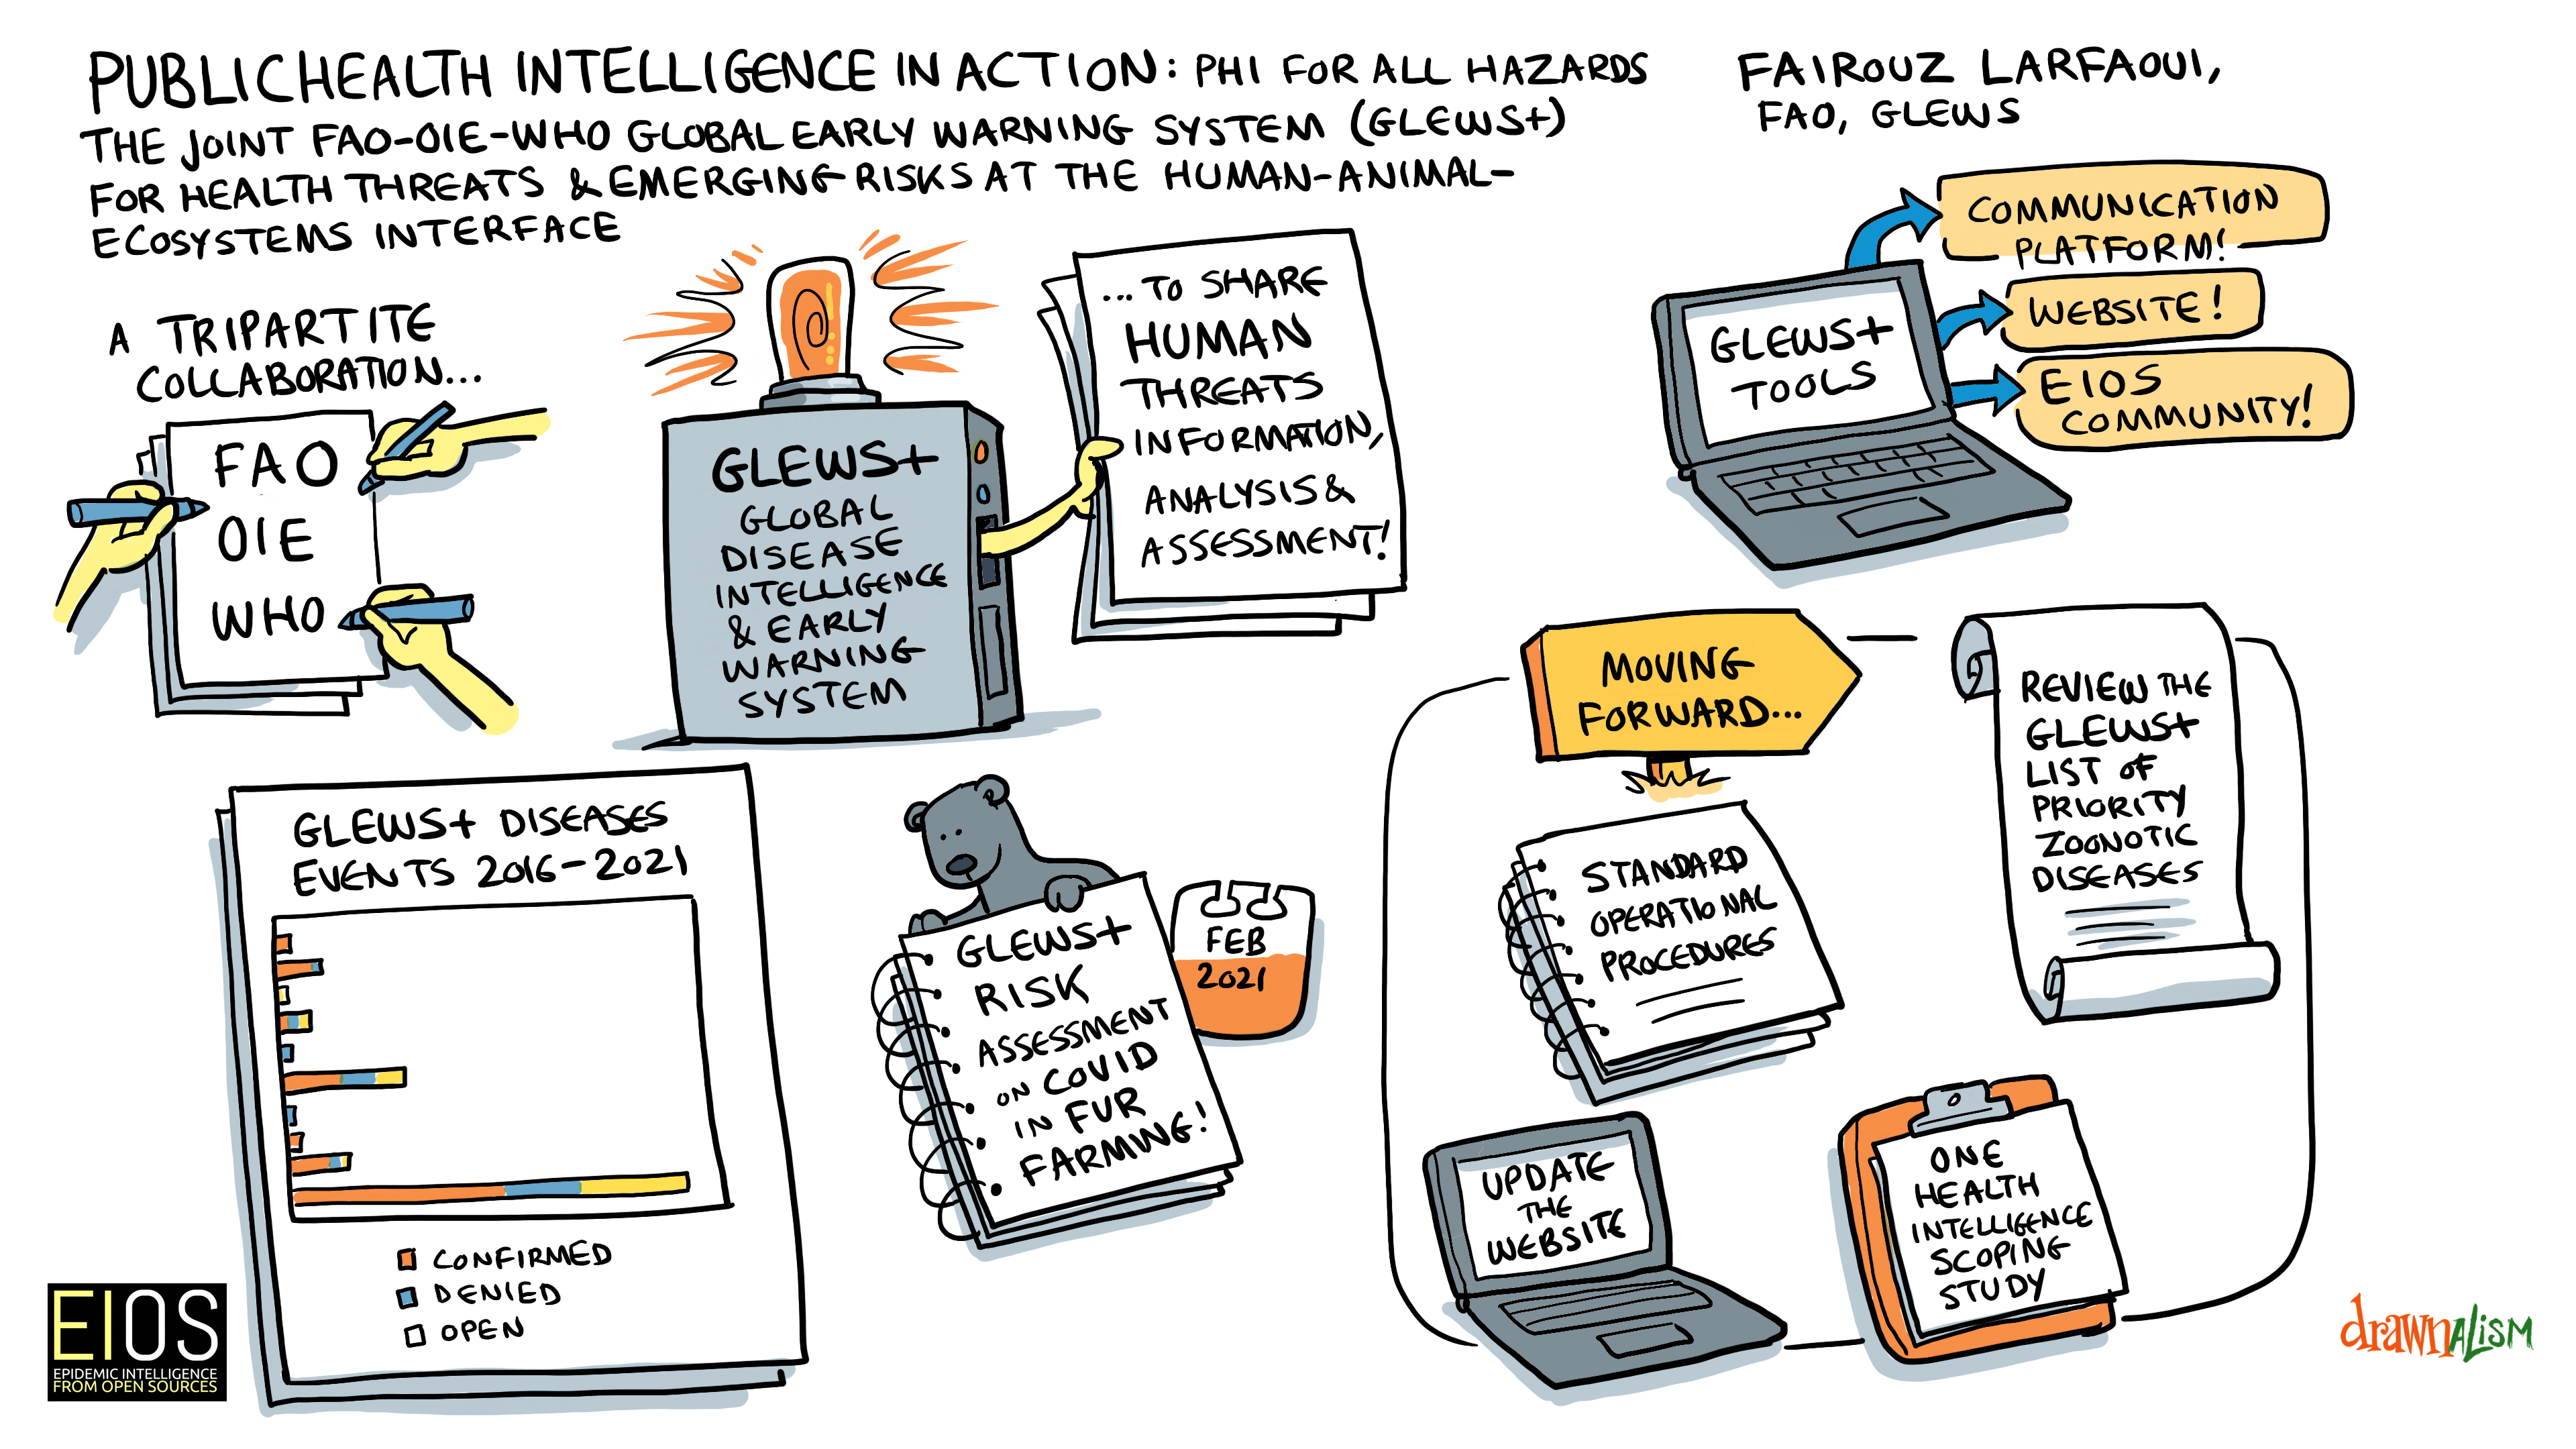 PUBLIC HEALTH INTELLIGENCE IN ACTION: PHI FOR ALL HAZARDS
THE JOINT FAO-OIE-WHO GLOBAL EARLY WARNING SYSTEM (GLEWS+)
FOR HEALTH THREATS & EMERGING RISKS AT THE HUMAN-ANIMAL-
ECOSYSTEMS INTERFACE
FAIROUZ LARFAOUI,
FAO, GLEWS
A TRIPARTITE
COLLABORATION...
FAO
OIE
WHO
GLEWS+
GLOBAL
DISEASE
INTELLIGENCE
& EARLY
WARNING
SYSTEM
...TO SHARE
HUMAN
THREATS
INFORMATION,
ANALYSIS &
ASSESSMENT!
GLEWS+
TOOLS
COMMUNICATION
PLATFORM!
WEBSITE!
EIOS
COMMUNITY!
GLEWS+ DISEASES
EVENTS 2016-2021
CONFIRMED
DENIED
OPEN
GLEWS+
RISK
ASSESSMENT
ON COVID
IN FUR
FARMING!
FEB
2021
MOVING
FORWARD...
STANDARD
OPERATIONAL
PROCEDURES
REVIEW THE
GLEWS+
LIST OF
PRIORITY
ZOONOTIC
DISEASES
UPDATE
THE
WEBSITE
ONE
HEALTH
INTELLIGENCE
SCOPING
STUDY
EIOS
EPIDEMIC INTELLIGENCE
FROM OPEN SOURCES
drawnALISM